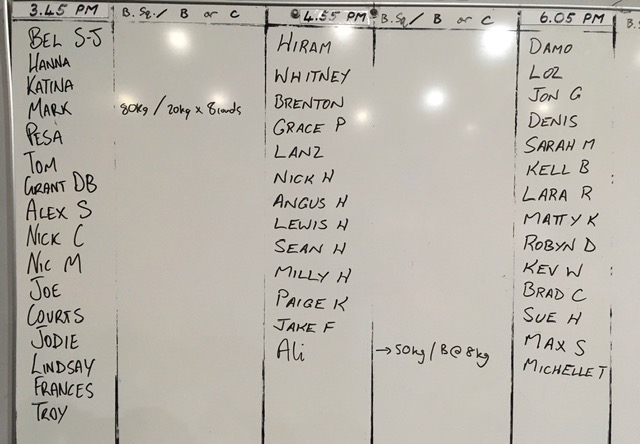 3.45 PM B. Sq./ B or C
BEL S-J
HANNA
KATINA
MARK 80kg / 20kg x 8rounds
PESA
TOM
GRANT DB
ALEX S
NICK C
NIC M
JOE
COURTS
JODIE
LINDSAY
FRANCES
TROY
4.55 PM B. Sq./ B or C
HIRAM
WHITNEY
BRENTON
GRACE P
LANZ
NICK H
ANGUS H
LEWIS H
SEAN H
MILLY H
PAIGE K
JAKE F
Ali → 50kg / B@8kg
6.05 PM B.S
DAMO
LOZ
JON G
DENIS
SARAH M
KELL B
LARA R
MATTY K
ROBYN D
KEV W
BRAD C
SUE H
MAX S
MICHELLE T